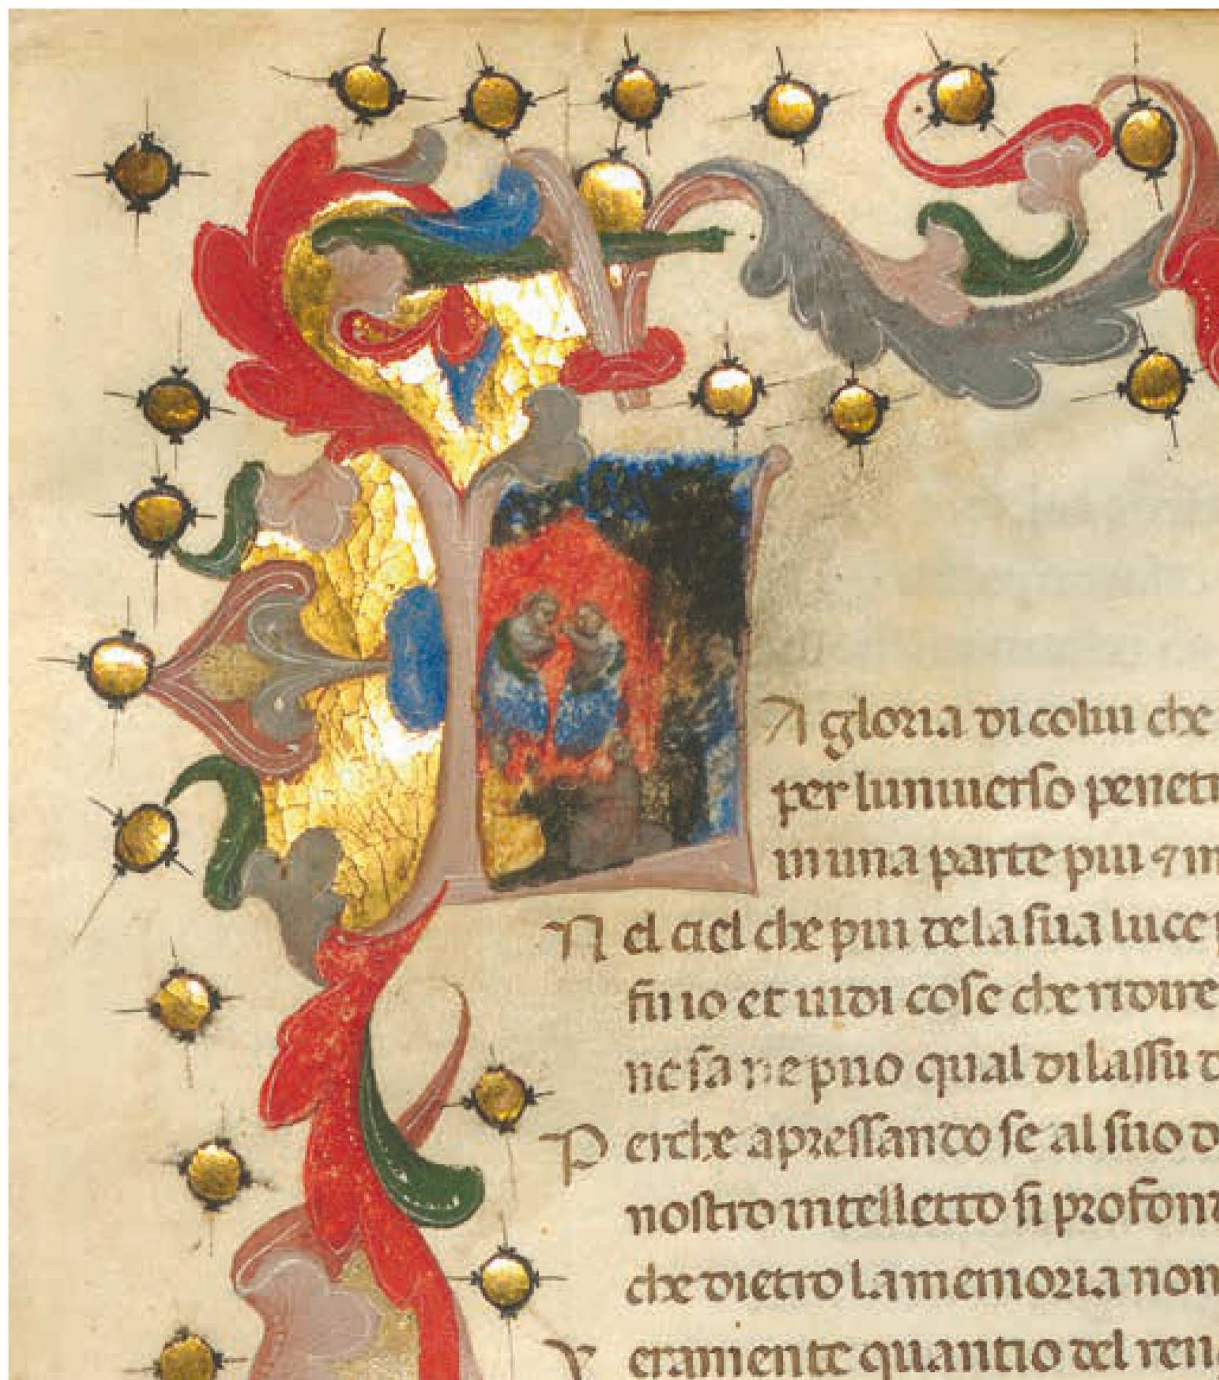 LA gloria di colui che
per luniuerso penetr
in una parte piu ⁊ in
Nel ciel che piu dela sua luce p
fu io et uidi cose che ridire
ne sa ne puo qual di lassu d
Perche apressando se al suo d
nostro intelletto si profon
che dietro la memoria non
Veramente quantio del ren